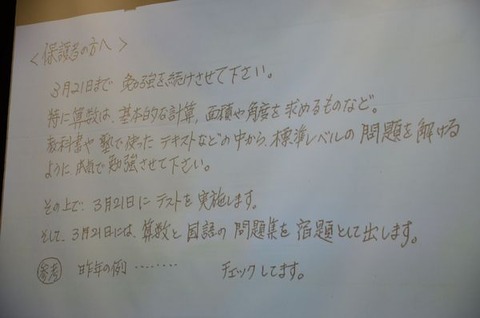 <保護者の方へ>
3月21日まで 勉強を続けさせて下さい。
特に算数は、基本的な計算、面積や角度を求めるものなど。
教科書や塾で使ったテキストなどの中から、標準レベルの問題を解ける
ように 勉強させて下さい。
その上で、3月21日にテストを実施します。
そして、3月21日には、算数と国語の問題集を宿題として出します。
参考 昨年の例‥‥‥‥ チェックしてます。